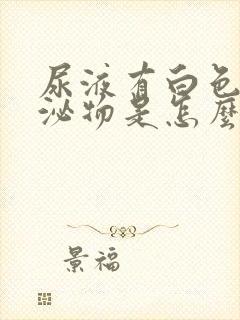 尿液有白色
泌物是怎麼
景福